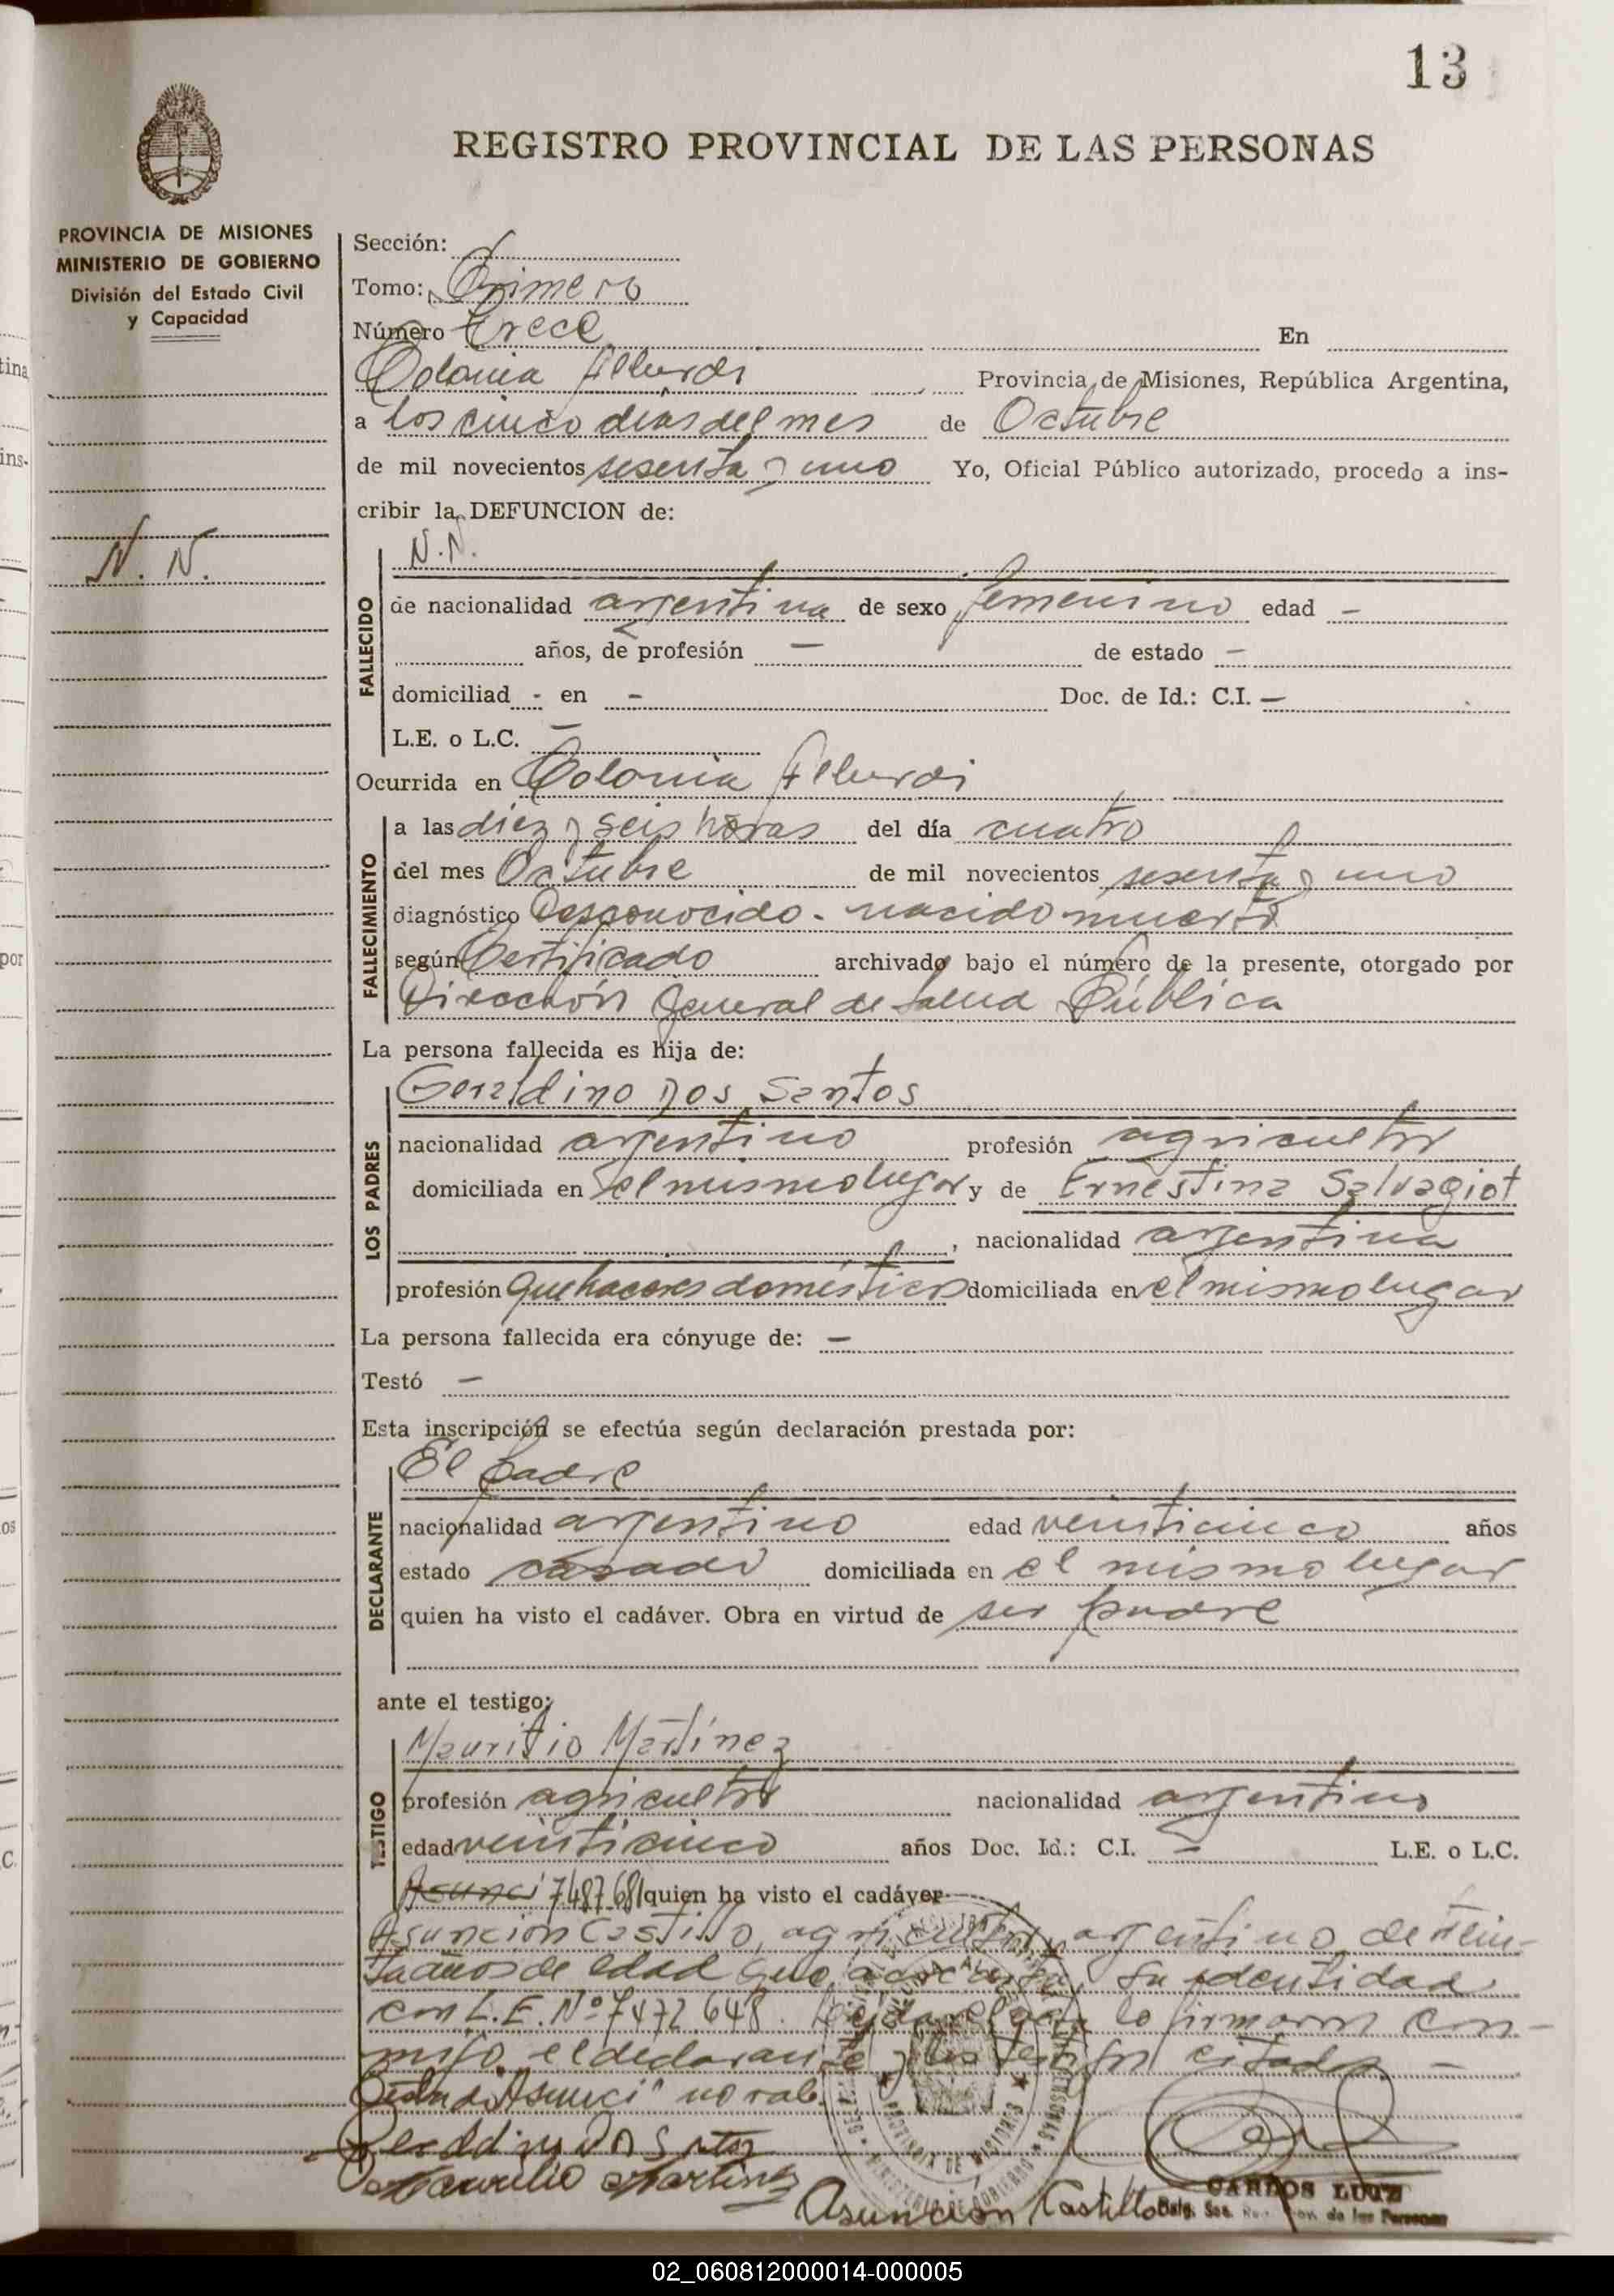 13
REGISTRO PROVINCIAL DE LAS PERSONAS
PROVINCIA DE MISIONES
MINISTERIO DE GOBIERNO
División del Estado Civil
y Capacidad
N. N.
Sección:
Tomo: Primero
Número Trece En
Colonia Alberdi Provincia de Misiones, República Argentina,
a los cinco dias del mes de Octubre
de mil novecientos sesenta y uno Yo, Oficial Público autorizado, procedo a ins-
cribir la DEFUNCION de:
N.N.
FALLECIDO
de nacionalidad argentina de sexo femenino edad -
años, de profesión - de estado -
domiciliad - en - Doc. de Id.: C.I. -
L.E. o L.C. -
Ocurrida en Colonia Alberdi
FALLECIMIENTO
a las diez y seis horas del día cuatro
del mes Octubre de mil novecientos sesenta y uno
diagnóstico Desconocido - nacido muerto
según Certificado archivado bajo el número de la presente, otorgado por
Dirección General de Salud Pública
La persona fallecida es hija de:
LOS PADRES
Geraldino Dos Santos
nacionalidad argentino profesión agricultor
domiciliada en el mismo lugar y de Ernestina Salvagiot
, nacionalidad argentina
profesión quehaceres domésticos domiciliada en el mismo lugar
La persona fallecida era cónyuge de: -
Testó -
Esta inscripción se efectúa según declaración prestada por:
DECLARANTE
El padre
nacionalidad argentino edad veinticinco años
estado casado domiciliada en el mismo lugar
quien ha visto el cadáver. Obra en virtud de ser padre
ante el testigo:
TESTIGO
Mauritio Martínez
profesión agricultor nacionalidad argentino
edad veinticinco años Doc. Id.: C.I. - L.E. o L.C.
Asunci 7487681 quien ha visto el cadáver
Asunción Castillo, agricultor, argentino, de trein-
ta años de edad que acredita su identidad
con L.E. Nº 7472648. Leída el acta lo firmaron con-
migo, el declarante y los testigos citados -
"Asunci" no vale.
PROVINCIA DE MISIONES
MINISTERIO DE GOBIERNO
Asunción Castillo
CARLOS LUTZ
de las Personas
02_060812000014-000005